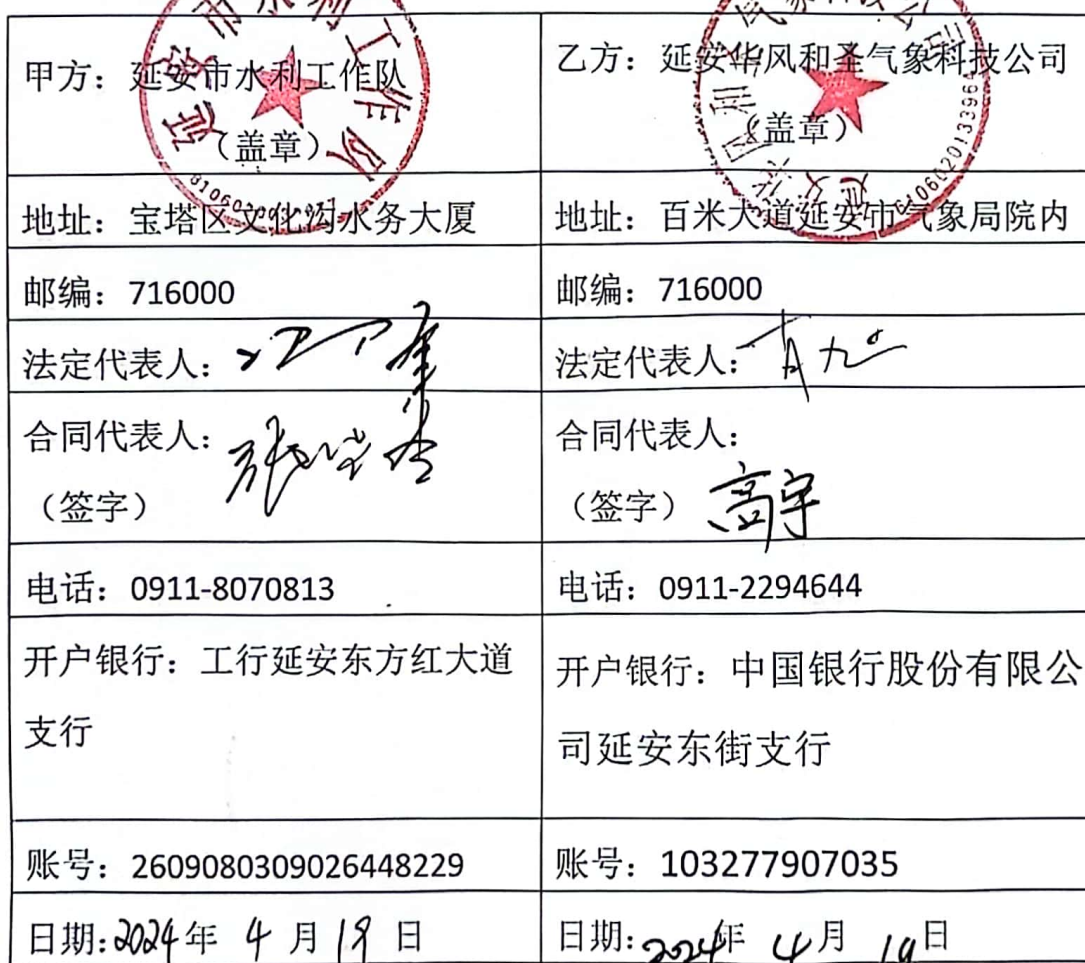 甲方：延安市水利工作队
（盖章）
乙方：延安华风和圣气象科技公司
（盖章）
地址：宝塔区文化沟水务大厦
地址：百米大道延安市气象局院内
邮编：716000
邮编：716000
法定代表人：
法定代表人：
合同代表人：
（签字）
合同代表人：
（签字）高宇
电话：0911-8070813
电话：0911-2294644
开户银行：工行延安东方红大道
支行
开户银行：中国银行股份有限公
司延安东街支行
账号：2609080309026448229
账号：103277907035
日期：2024年 4 月 19 日
日期：2024年 4月 19日